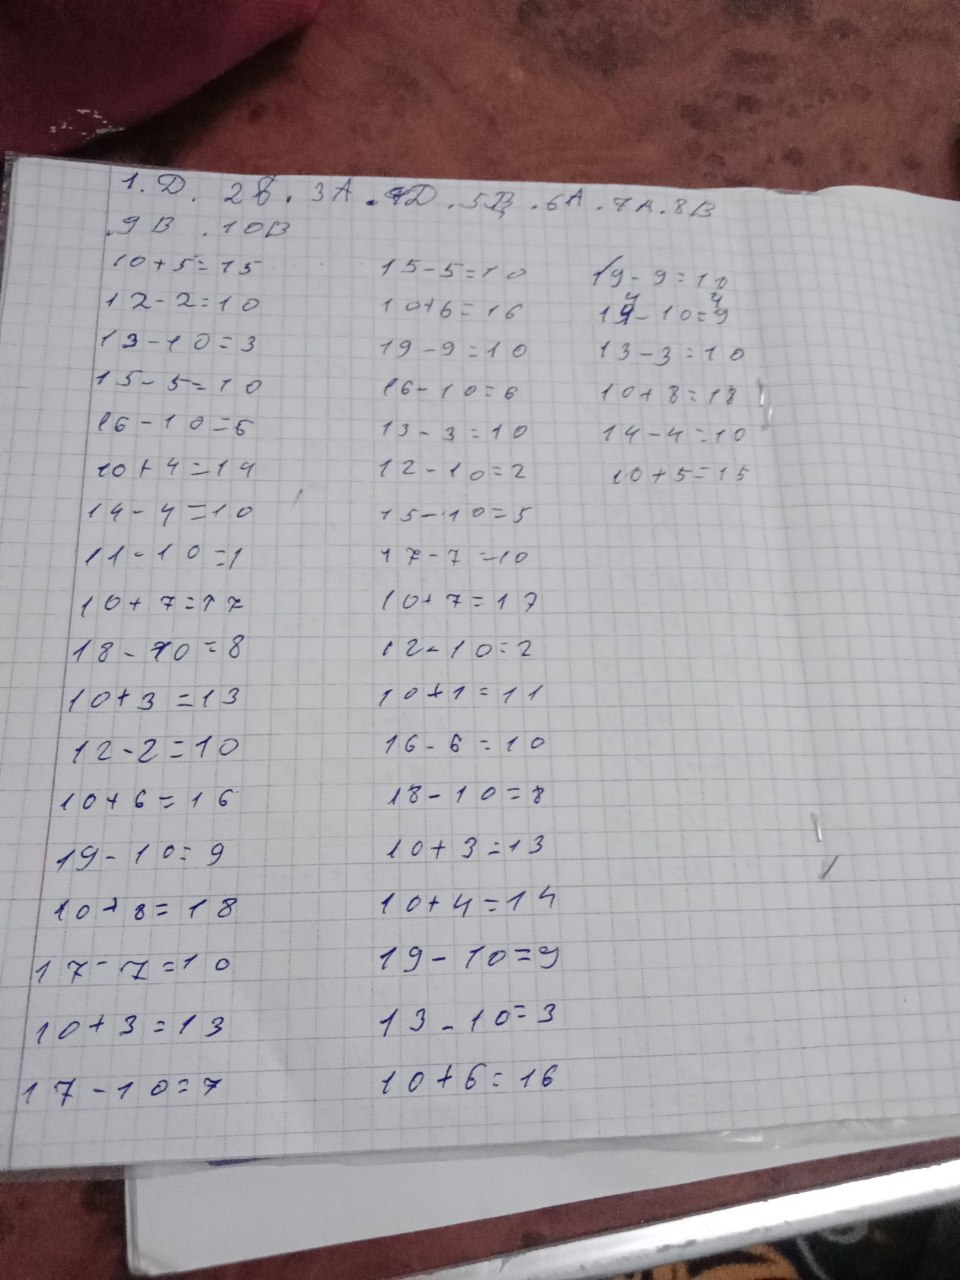 1. D. 2B. 3A. 4D. 5B. 6A. 7A. 8B
9B. 10B
10+5=15
12-2=10
13-10=3
15-5=10
16-10=6
10+4=14
14-4=10
11-10=1
10+7=17
18-10=8
10+3=13
12-2=10
10+6=16
19-10=9
10+8=18
17-7=10
10+3=13
17-10=7
15-5=10
10+6=16
19-9=10
16-10=6
13-3=10
12-10=2
15-10=5
17-7=10
10+7=17
12-10=2
10+1=11
16-6=10
18-10=8
10+3=13
10+4=14
19-10=9
13-10=3
10+6=16
19-9=10
14-10=4
13-3=10
10+8=18
14-4=10
10+5=15